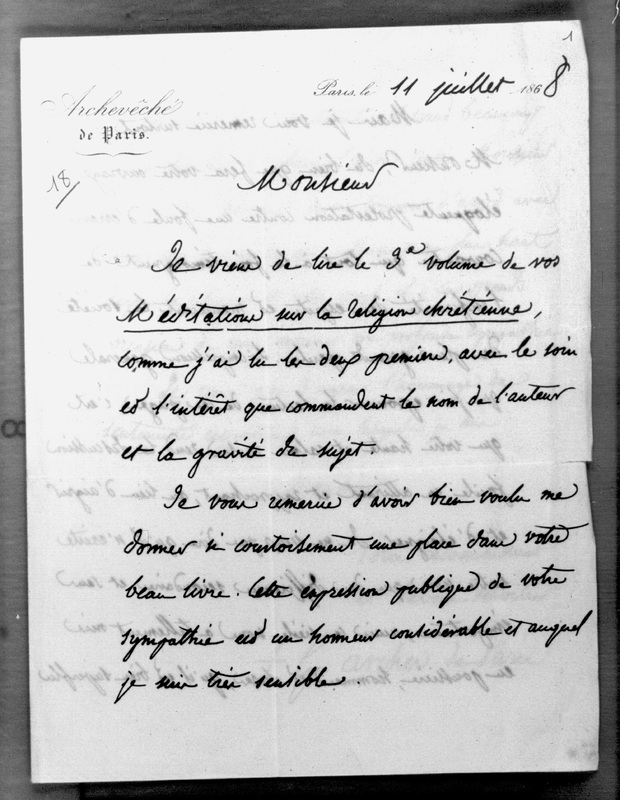 1
Paris, le 11 juillet 1868
Archevêché
de Paris.
18/
Monsieur
Je viens de lire le 3e volume de vos
Méditations sur la religion chrétienne,
comme j'ai lu les deux premiers, avec le soin
et l'intérêt que commandent le nom de l'auteur
et la gravité du sujet.
Je vous remercie d'avoir bien voulu me
donner si courtoisement une place dans votre
beau livre. Cette expression publique de votre
sympathie est un honneur considérable et auquel
je suis très sensible.